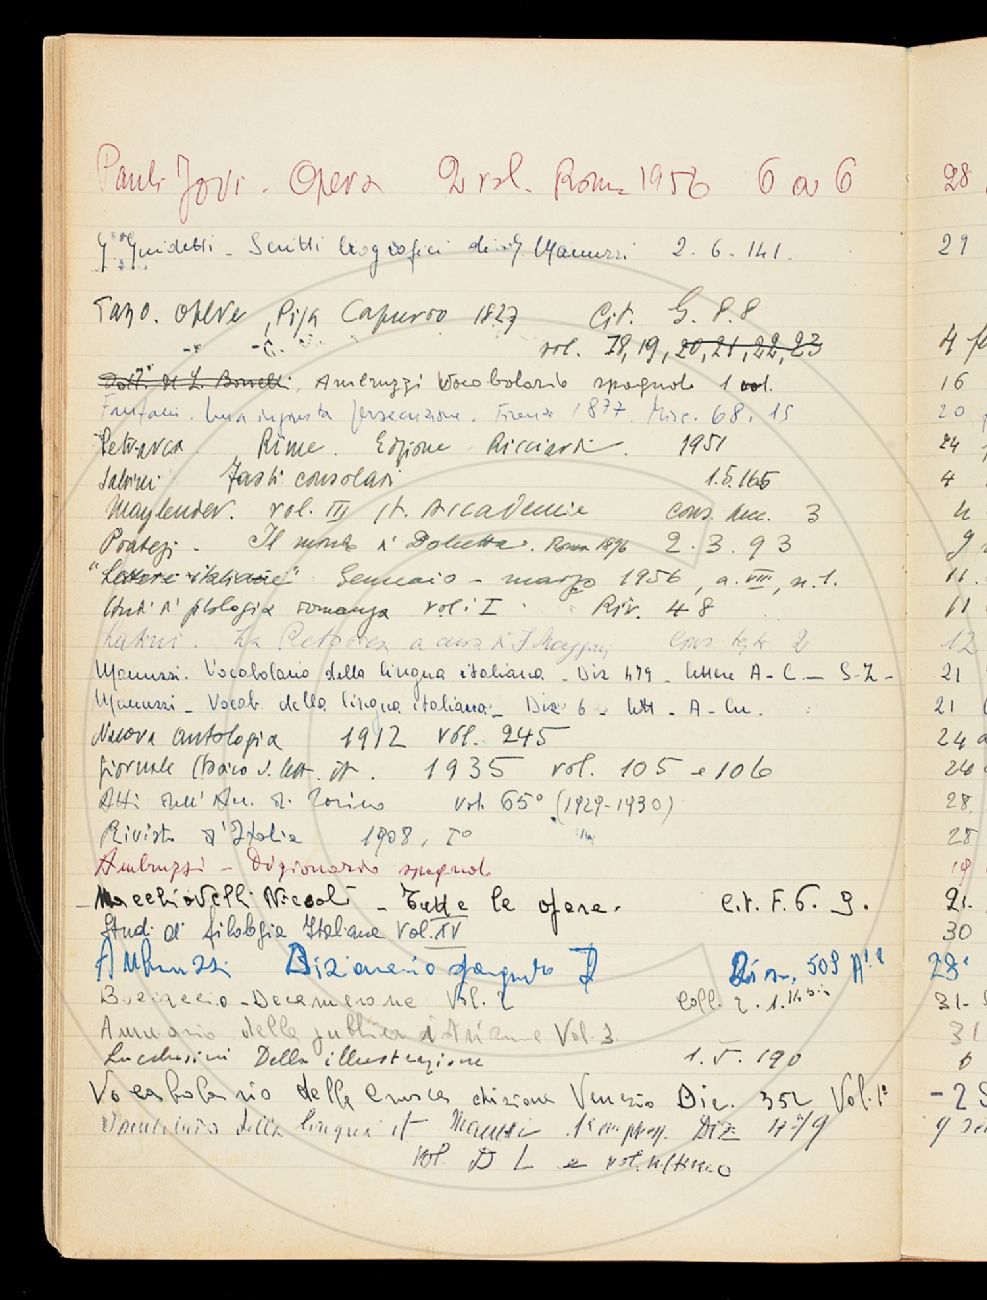 Pauli Jovi. Opera 2 vol. Roma 1956 6 a 6 28
G. Guidetti - Scritti biografici di G. Manuzzi 2. 6. 141. 29
Tasso. Opere, Pisa Capurro 1827 Cit. G. 8. 8
" " vol. 18, 19, 20, 21, 22, 23 4
Ambruzzi Vocabolario spagnolo 1 vol. 16
Fanfani. Una ingiusta persecuzione. Firenze 1877. Misc. 68. 15 20
Petrarca Rime. Edizione Ricciardi. 1951 24
Salvini Fasti consolari 1.5.165 4
Maylender. vol. III st. Accademie Cons. Acc. 3 4
Il mondo di Dolcetta. Roma 1896 2. 3. 93 9
"Lettere italiane" Gennaio - marzo 1956, a. VIII, n. 1. 11.
Studi di filologia romanza vol. I Riv. 48 11
Latini. La Rettorica a cura di F. Maggini Cons. 2 12
Manuzzi. Vocabolario della lingua italiana - Diz 479 - lettere A - C. - S-Z - 21
Manuzzi - Vocab. della lingua italiana - Diz 6 - lett - A - Cu. 21
Nuova antologia 1912 vol. 245 24
Giornale storico d. lett. it. 1935 vol. 105 e 106 24
Atti dell'Acc. di Torino vol. 65° (1929-1930) 28.
Rivista d'Italia 1908, I° 28
Ambruzzi - Dizionario spagnolo 19
- Macchiavelli Niccolò - Tutte le opere. Cit. F. 6. 9. 21.
Studi di filologia Italiana Vol. XV 30
Ambruzzi Dizionario spagnolo I Diz. 509 A." 23
Boccaccio - Decamerone Vol. 2 Coll. 2. 1. 14 bis 31-
Annuario della pubblica istruzione Vol. 3. 31
Lucchesini Della illustrazione 1. 5. 190 6
Vocabolario della Crusca edizione Venezia Diz. 352 Vol. 1° - 2
della lingua it Manuzzi Diz 479 9
vol. D L e vol. ultimo